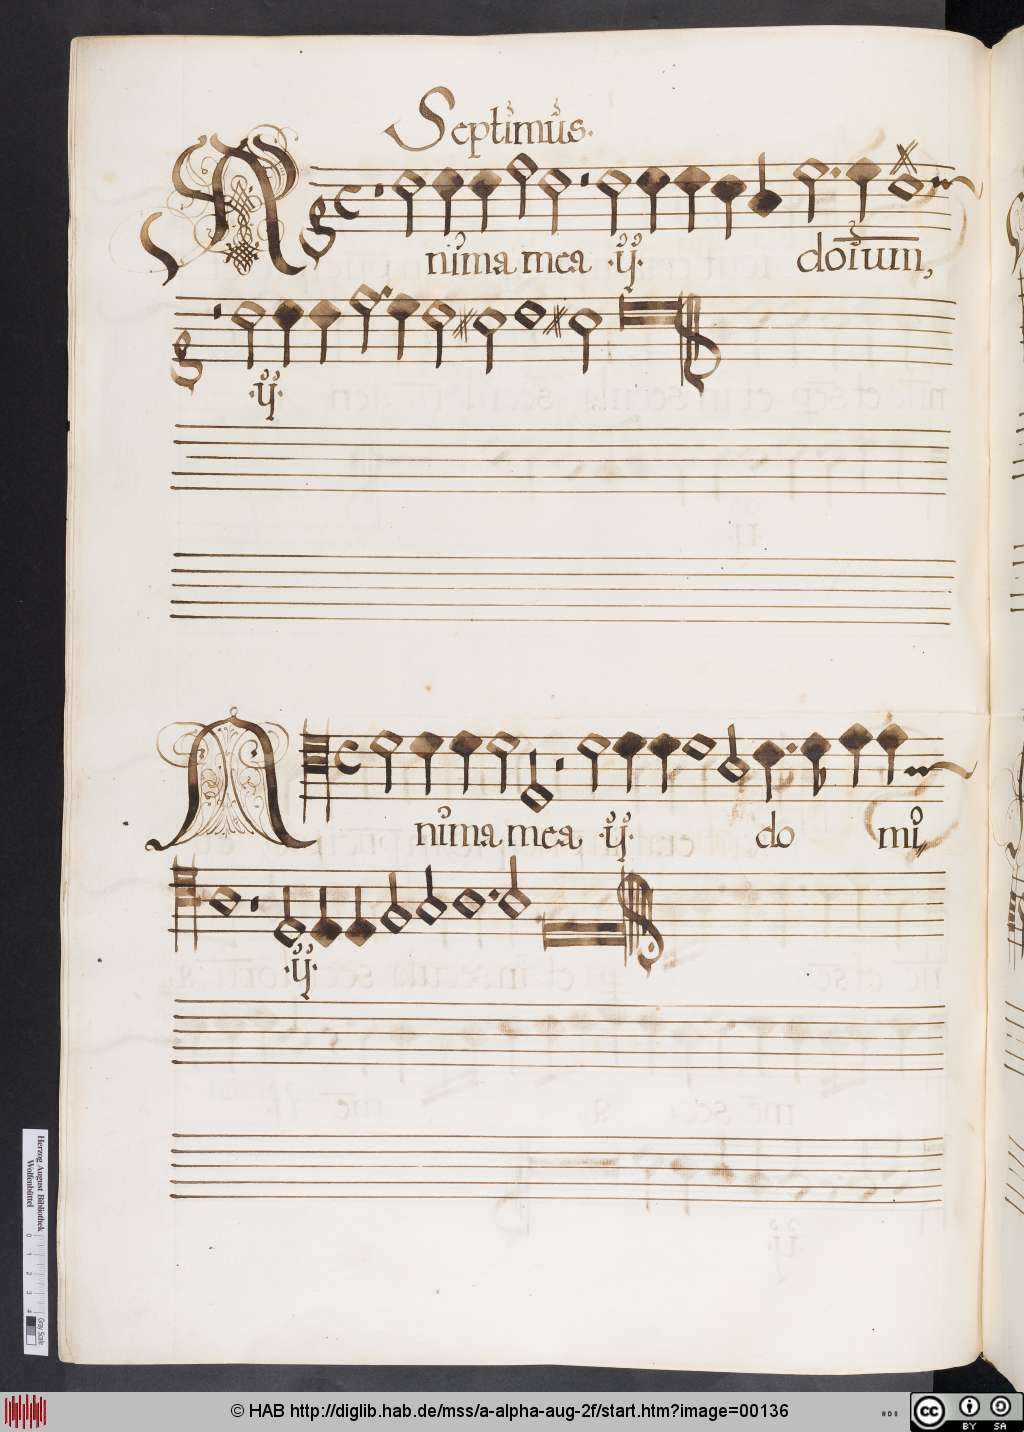 Septimus.
Anima mea ·ij· dominum,
·ij·
Anima mea ·ij· do mi
·ij·
Herzog August Bibliothek
Wolfenbüttel
0 1 2 3 4
© HAB http://diglib.hab.de/mss/a-alpha-aug-2f/start.htm?image=00136
cc BY SA